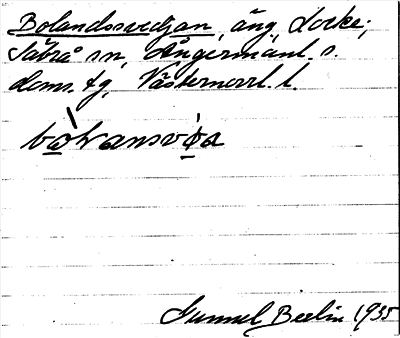 Bolandssvedjan, äng, Locke;
Säbrå sn, Ångermanl. s.
doms. tg, Västernorrl. l.
Gunnel Beelin 1935